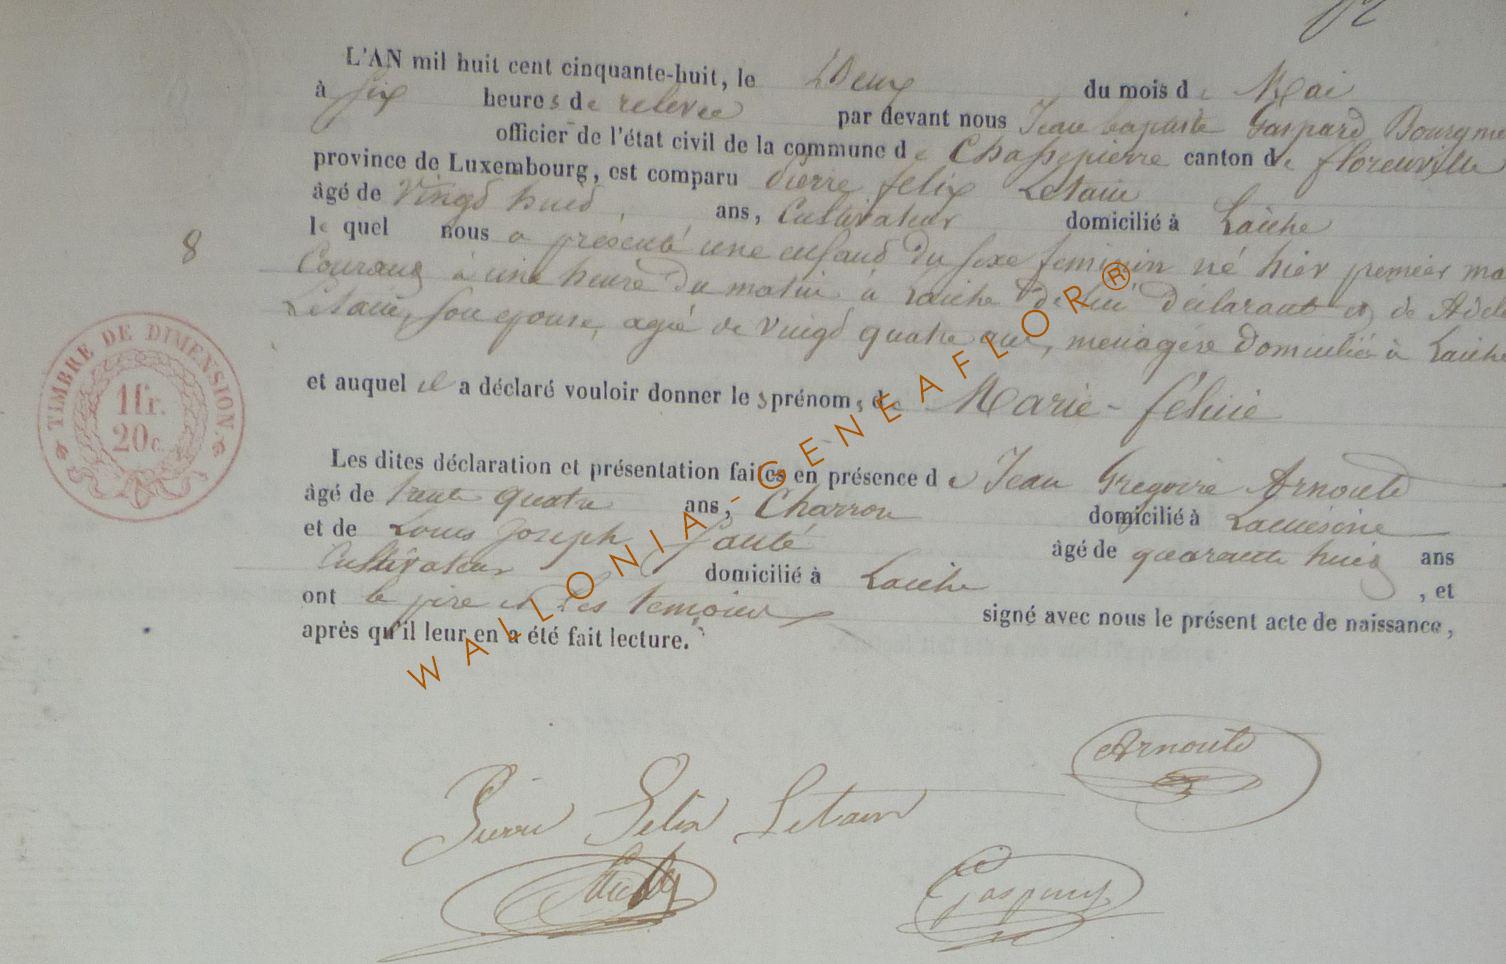 L'AN mil huit cent cinquante-huit, le Deux du mois de Mai
à six heures de relevée par devant nous Jean baptiste Gaspard Bourgme
officier de l'état civil de la commune de Chassepierre canton de florenville
province de Luxembourg, est comparu Pierre felix Letaiu
âgé de Vingt huit, ans, Cultivateur domicilié à Laiche
le quel nous a présenté une enfant du sexe feminin né hier premier ma
8
Courant à une heure du matin à Laiche de lui déclarant et de Adele
Letaiu, son epouse, agée de Vingt quatre ans, menagère domiciliée à Laiche
et auquel il a déclaré vouloir donner les prénoms de Marie - félicie
Les dites déclaration et présentation faites en présence de Jean Gregoire Arnould
âgé de trente quatre ans, Charron domicilié à Lacuisine
et de Louis Joseph âgé de quarante huit ans
Cultivateur domicilié à Laiche, et
ont le père et les temoins signé avec nous le présent acte de naissance,
après qu'il leur en a été fait lecture.
TIMBRE DE DIMENSION.
1fr.
20c.
WALLONIA - GENEAFLOR®
Arnould
Pierre Felix Letaiu
Gaspard